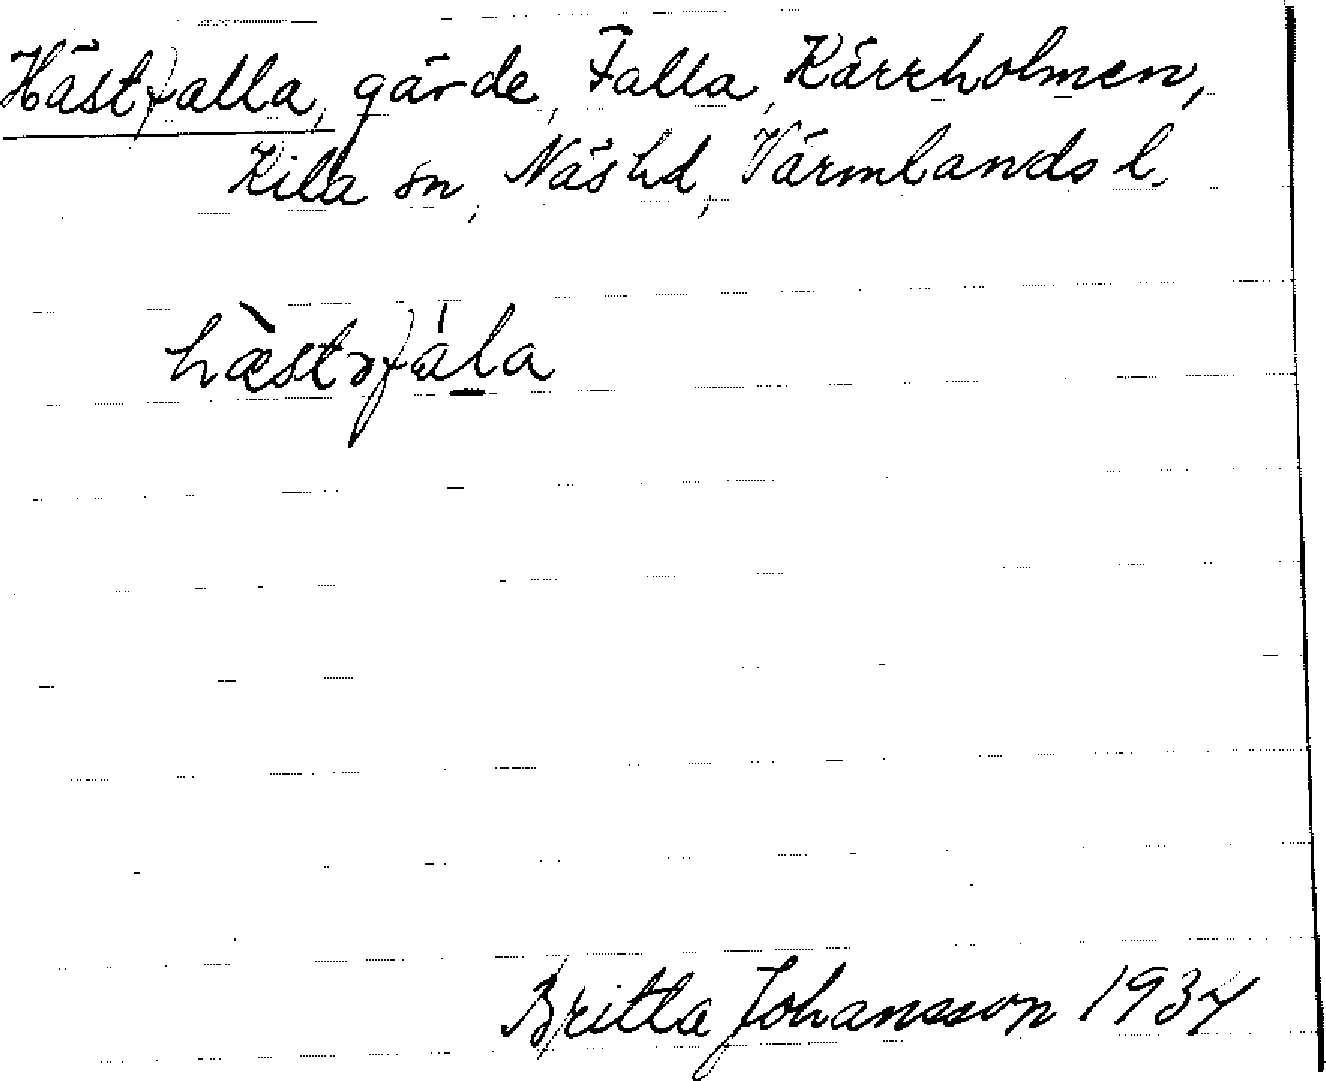 Hästfalla, gärde, Falla, Kärrholmen,
Kila sn, Näs hd, Värmlands l.
hæ̀stəfáḷa
Britta Johansson 1934